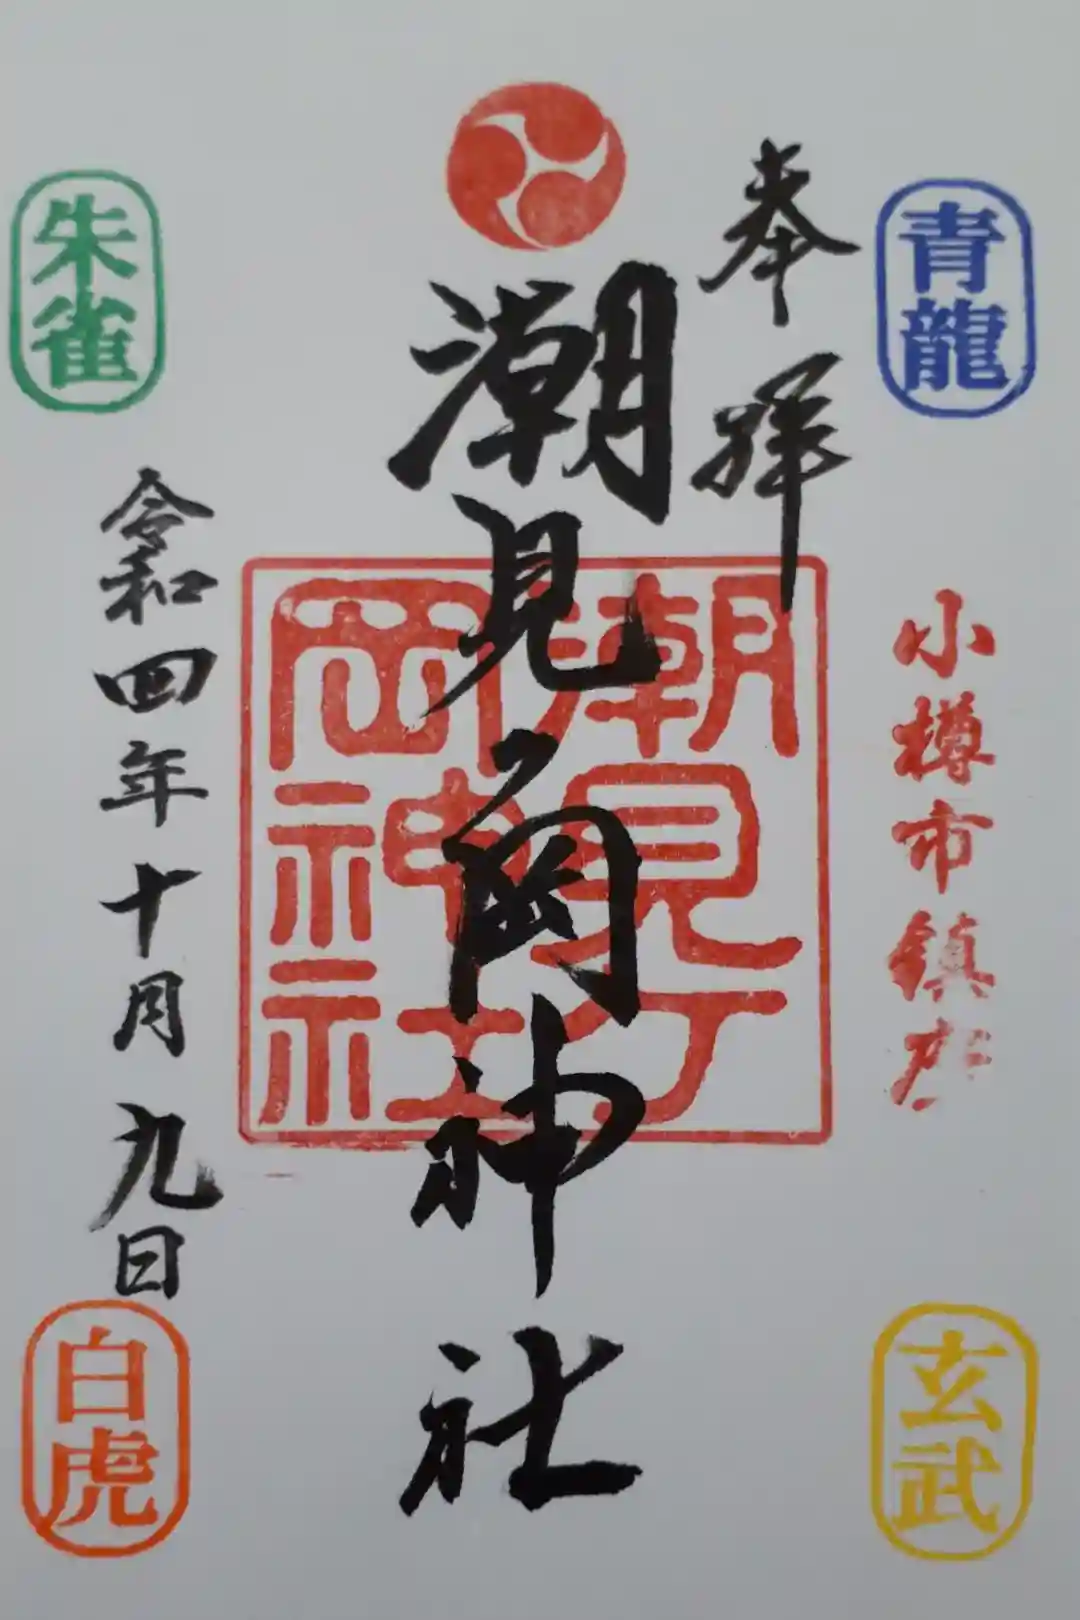 青龍
奉拝
小樽市鎮座
潮見ヶ岡神社
潮見ヶ岡神社
朱雀
令和四年十月九日
玄武
白虎